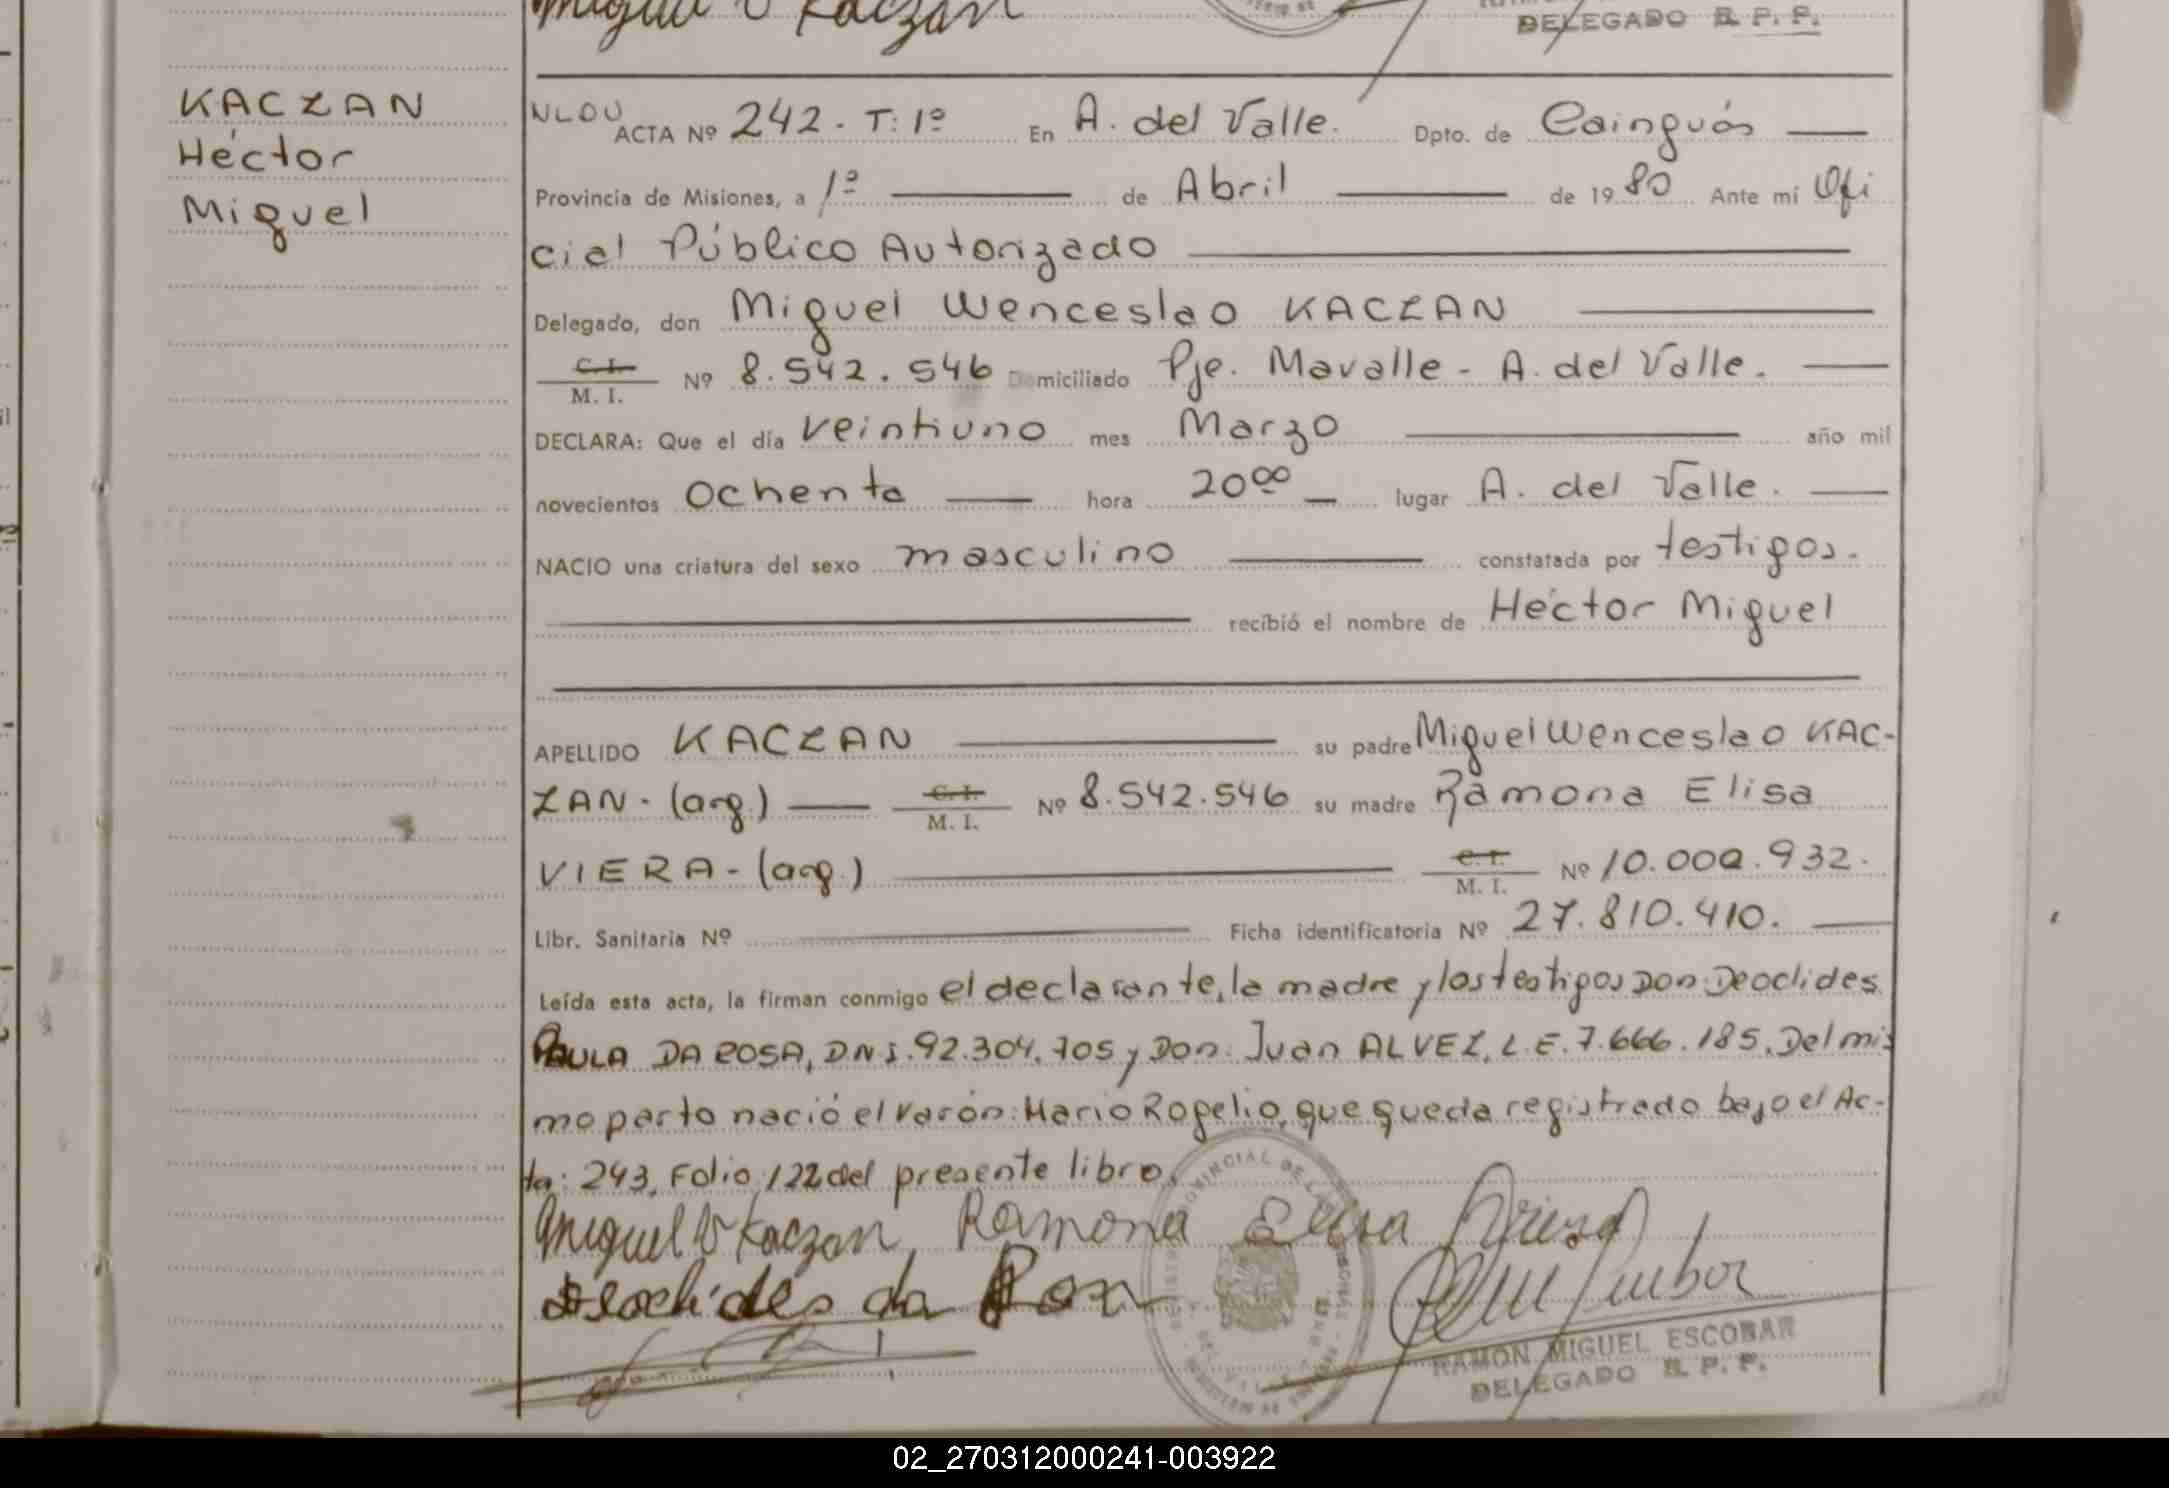 Miguel V Kaczan
DELEGADO R. P. P.
KACZAN
Héctor
Miguel
ACTA Nº 242. T: 1º En A. del Valle. Dpto. de Cainguás
Provincia de Misiones, a 1º de Abril de 1980 Ante mí Ofi
cial Público Autorizado
Delegado, don Miguel Wenceslao KACZAN
C. I.
M. I. Nº 8.542.546 Domiciliado Pje. Mavalle - A. del Valle.
DECLARA: Que el día veintiuno mes Marzo año mil
novecientos ochenta hora 20⁰⁰ lugar A. del Valle.
NACIO una criatura del sexo masculino constatada por testigos.
recibió el nombre de Héctor Miguel
APELLIDO KACZAN su padre Miguel Wenceslao KAC-
ZAN - (arg.) C. I. M. I. Nº 8.542.546 su madre Ramona Elisa
VIERA - (arg.) C. I. M. I. Nº 10.002.932.
Libr. Sanitaria Nº Ficha identificatoria Nº 27.810.410.
Leída esta acta, la firman conmigo el declarante, la madre y los testigos Don: Deoclides
PAULA DA ROSA, DNI. 92.304.705 y Don: Juan ALVEZ, L.E. 7.666.185. Del mis
mo parto nació el varón: Mario Rogelio, que queda registrado bajo el Ac-
ta: 243, Folio 122 del presente libro.
Miguel V Kaczan Ramona Elisa
Deoclides da Rosa
RAMON MIGUEL ESCOBAR
DELEGADO R. P. P.
02_270312000241-003922